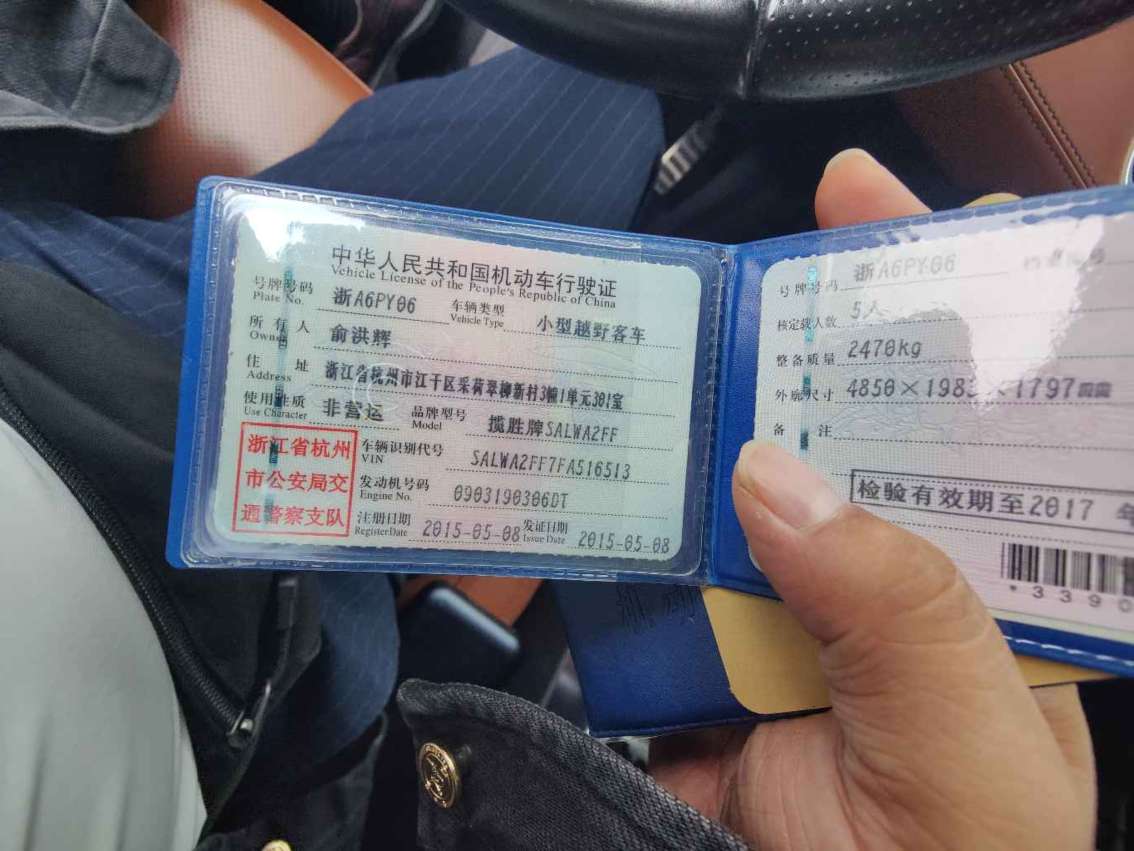 中华人民共和国机动车行驶证
Vehicle License of the People's Republic of China
号牌号码 浙A6PY06 车辆类型 小型越野客车
Plate No. Vehicle Type
所有人 俞洪辉
Owner
住址 浙江省杭州市江干区采荷翠柳新村3幢1单元301室
Address
使用性质 非营运 品牌型号 揽胜牌SALWA2FF
Use Character Model
浙江省杭州
市公安局交
通警察支队
车辆识别代号 SALWA2FF7FA516513
VIN
发动机号码 0903190306DT
Engine No.
注册日期 2015-05-08 发证日期 2015-05-08
Register Date Issue Date
号牌号码 浙A6PY06
核定载人数 5人
整备质量 2470kg
外廓尺寸 4850×1983×1797
备注
检验有效期至2017 年
*3390